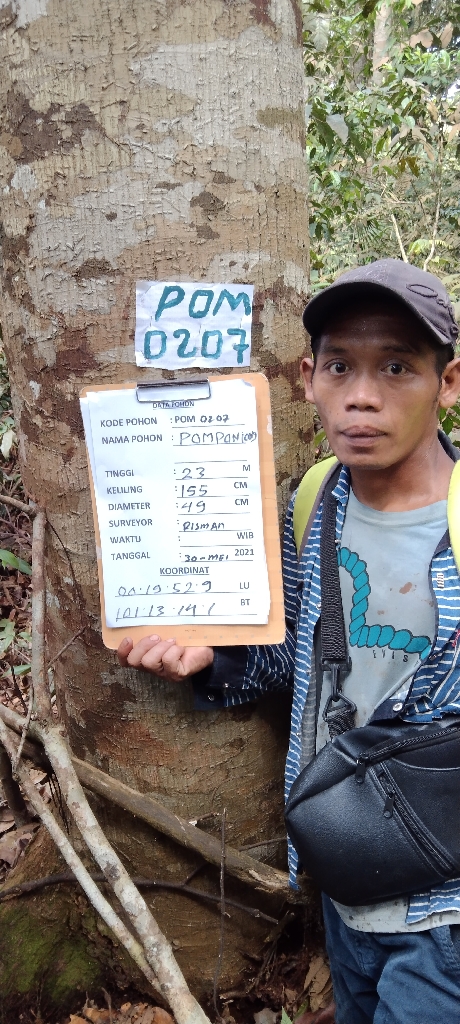 POM
0207
DATA POHON
KODE POHON : POM 0207
NAMA POHON : POMPON
TINGGI : 23 M
KELILING : 155 CM
DIAMETER : 49 CM
SURVEYOR : RISMAN
WAKTU : WIB
TANGGAL : 30-MEI 2021
KOORDINAT
00.19.52.9 LU
101.13.14.1 BT